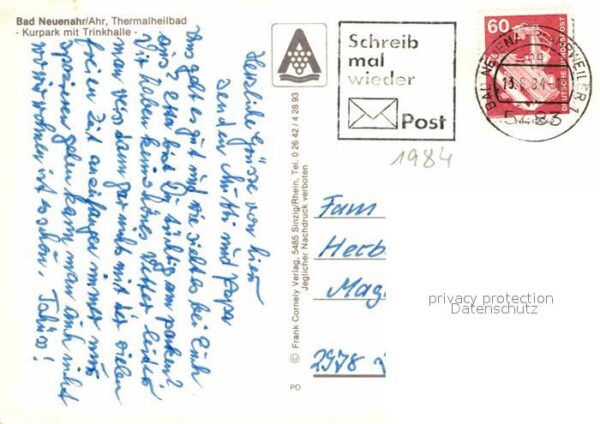 Bad Neuenahr/Ahr, Thermalheilbad
- Kurpark mit Trinkhalle -
Herzliche Grüsse von hier
senden Mutti und Papa
Uns geht es gut und wie sieht es bei Euch
aus,
Wir haben kein schönes Wetter leider
man weiss dann gar nichts mit der vielen
freien Zeit anzufangen immer nur
spazieren gehen kann man auch nicht
ist es schon,
© Frank Cornely Verlag, 5485 Sinzig/Rhein, Tel. 0 26 42 / 4 28 93
Jeglicher Nachdruck verboten
PD
Schreib
mal
wieder
Post
60
DEUTSCHE BUNDESPOST
BAD NEUENAHR-AHRWEILER 1
5483
1984
Fam
Herb
Mag
2978
privacy protection
Datenschutz